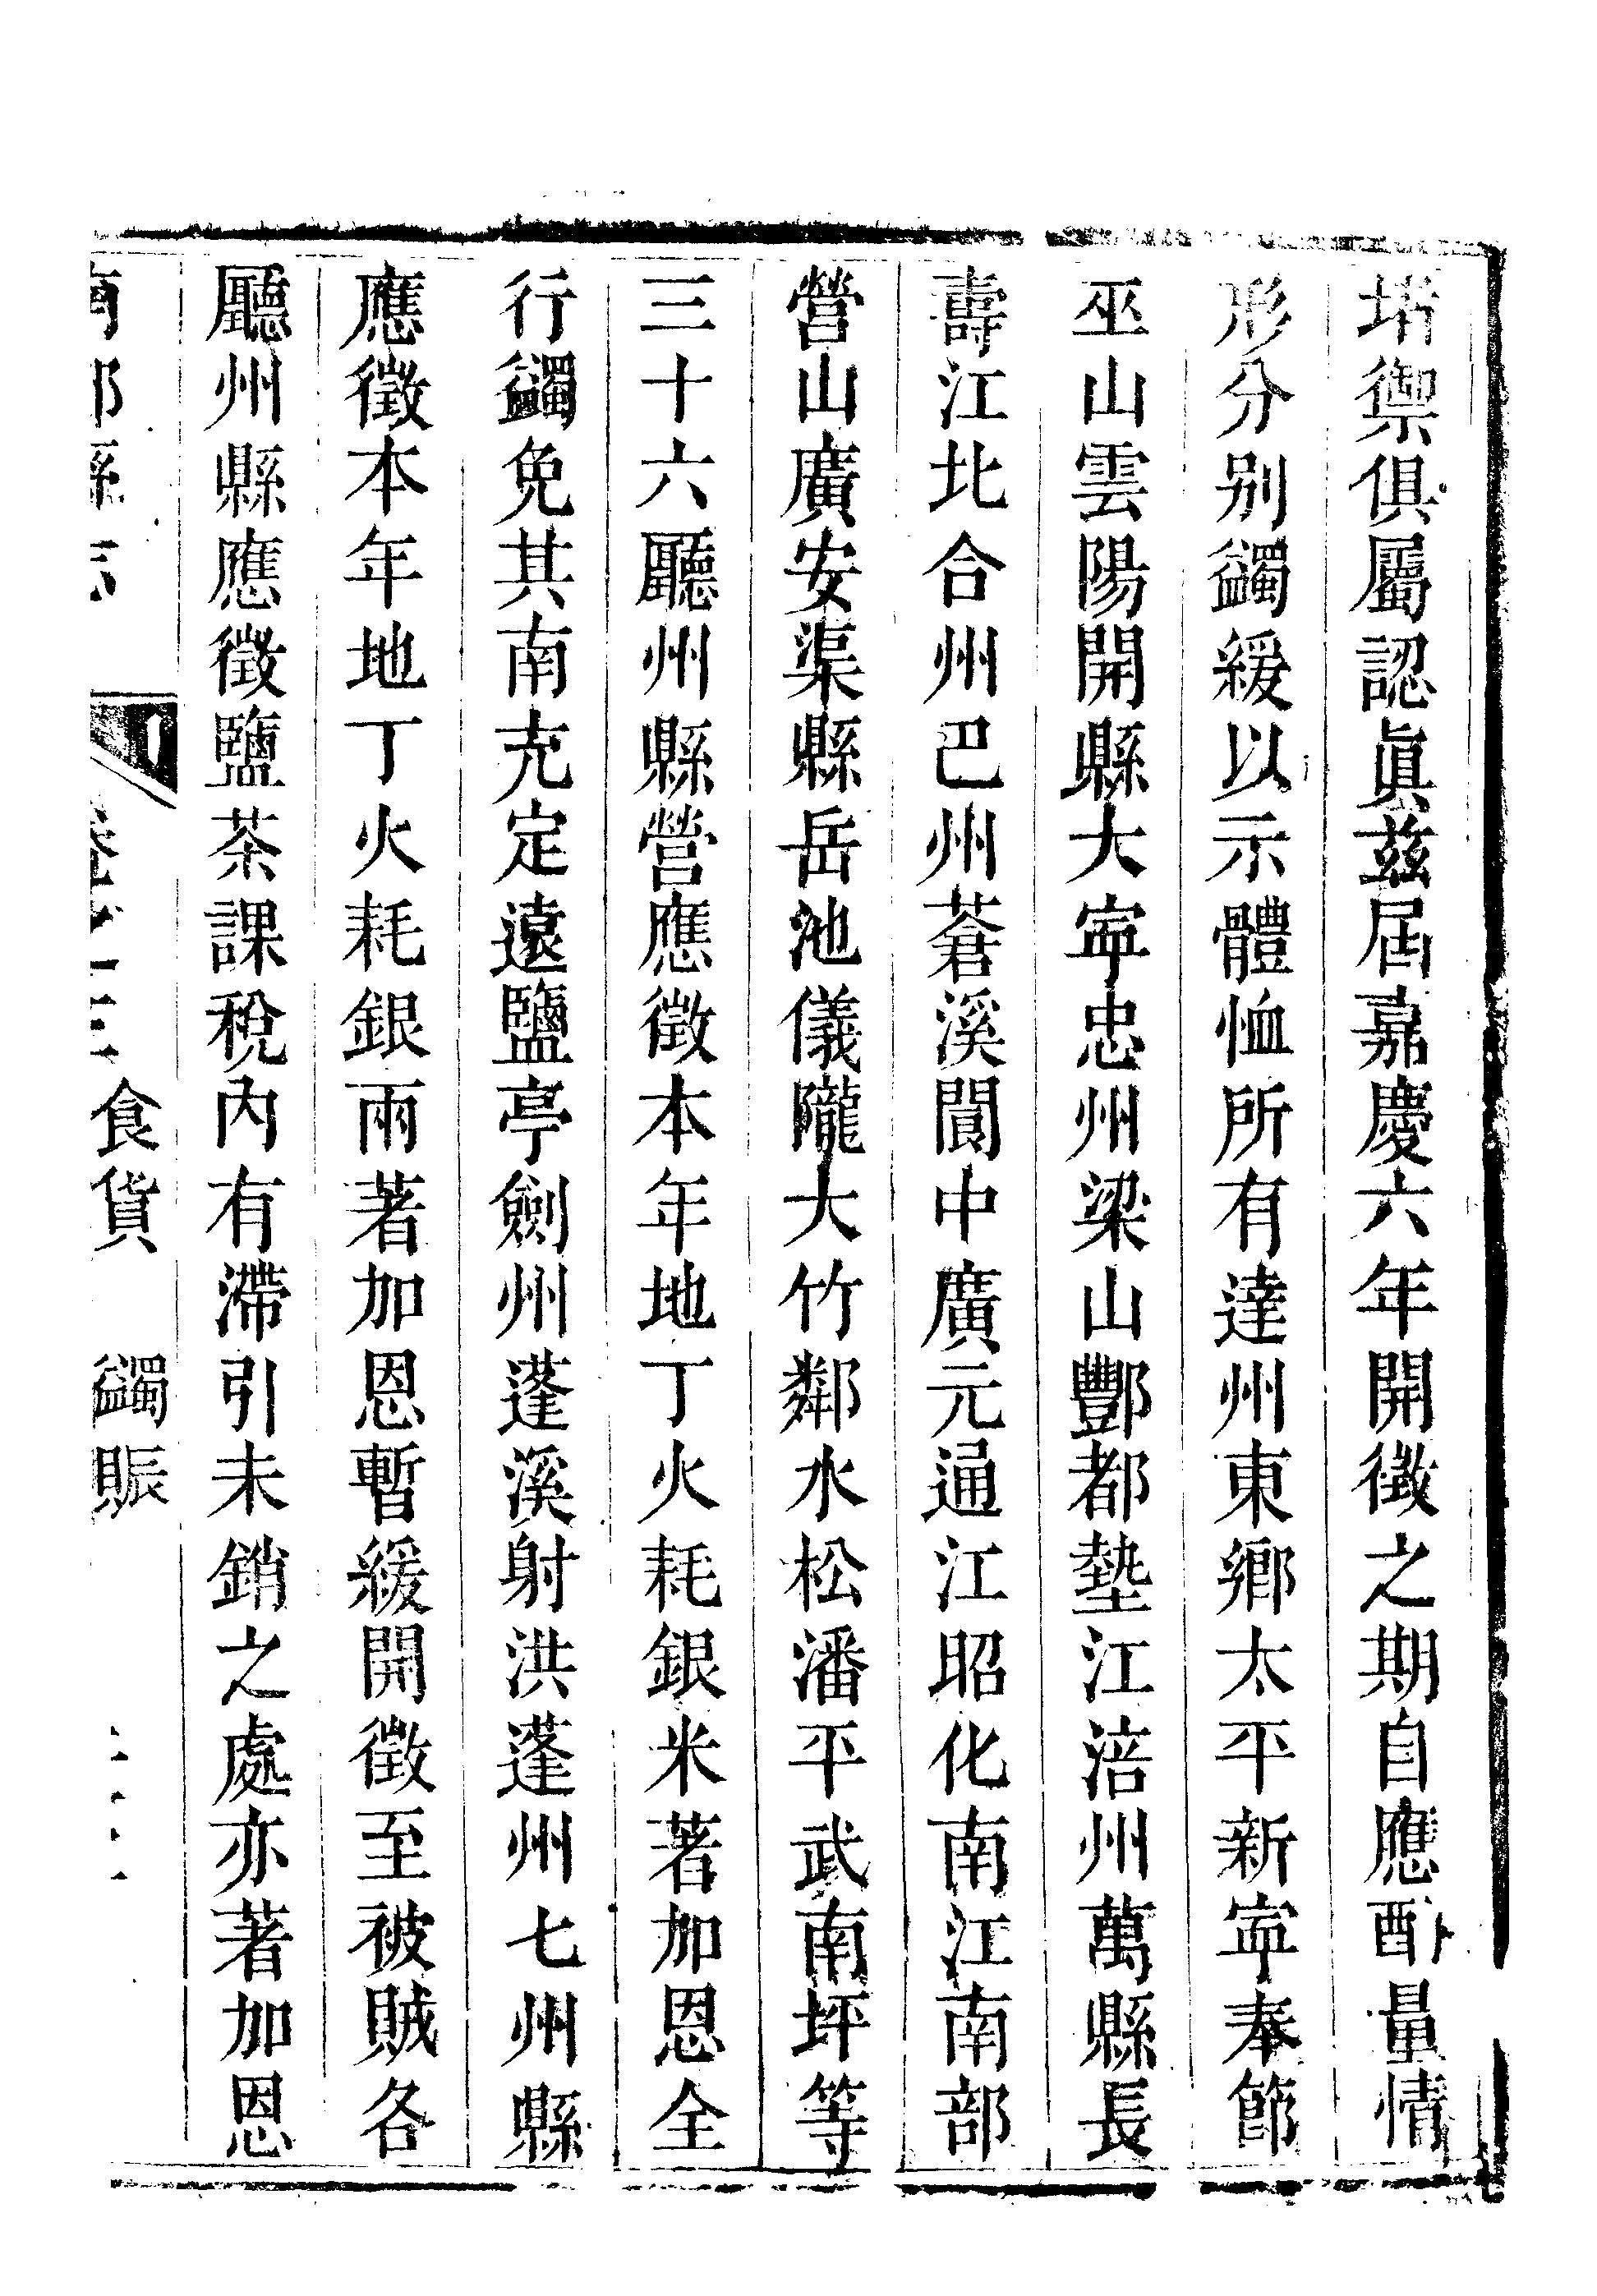 堵禦俱屬認眞茲屆嘉慶六年開徵之期自應酌量情
形分別蠲緩以示體恤所有達州東鄉太平新寍奉節
巫山雲陽開縣大寍忠州梁山酆都墊江涪州萬縣長
壽江北合州巴州蒼溪閬中廣元通江昭化南江南部
營山廣安渠縣岳池儀隴大竹鄰水松潘平武南坪等
三十六廳州縣營應徵本年地丁火耗銀米著加恩全
行蠲免其南充定遠鹽亭劍州蓬溪射洪蓬州七州縣
應徵本年地丁火耗銀兩著加恩暫緩開徵至被賊各
廳州縣應徵鹽茶課稅內有滯引未銷之處亦著加恩
南部縣志 食貨 蠲賑